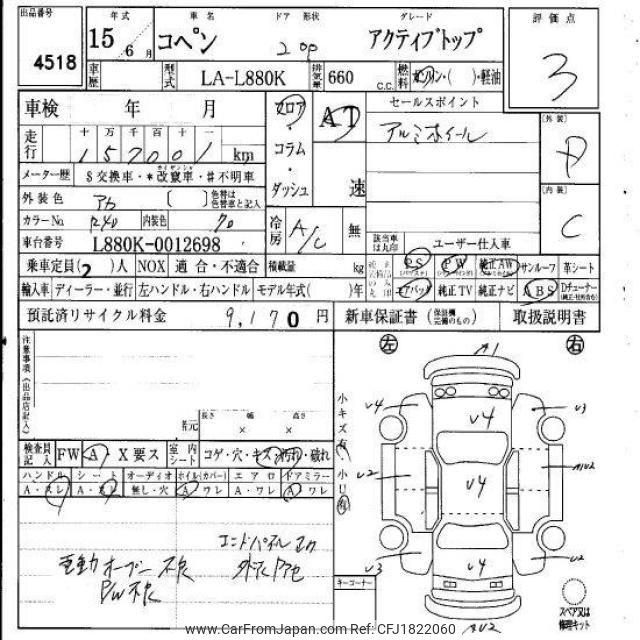 出品番号 年式 車名 ドア形状 グレード 評価点
4518 15年6月 コペン 2 OP アクティブトップ 3
車歴 型式 LA-L880K 排気量 660 C.C. 燃料 ガソリン・( )・軽油
車検 年 月 フロア・コラム・ダッシュ AT 速 セールスポイント 外装 D
走行 十 万 千 百 十 一 アルミホイール
1 5 7 0 0 1 km
メーター歴 $交換車・*改竄車・#不明車 内装 C
外装色 アカ ( ) 色替は色替車と記入
カラーNo. R40 内装色 70 冷房 A/C 無 該当車は丸印 ユーザー仕入車
車台番号 L880K-0012698 PS PW 純正AW サンルーフ 革シート
乗車定員(2)人 NOX 適合・不適合 積載量 kg
輸入車 ディーラー・並行 左ハンドル・右ハンドル モデル年式( )年 エアバッグ 純正TV 純正ナビ ABS Dチューナー
預託済リサイクル料金 9,170円 新車保証書 (保証書完備のもの) 取扱説明書
左 右
注意事項(出品店記入) A1
小キズ有 U4 U3
荷元 長さ 幅 高さ U4
× ×
検査員記入 FW A・X要ス 室内シート コゲ・穴・キズ・汚れ・破れ U2 AU2
ハンドル シート オーディオ ホイル(カバー) エアロ ドアミラー 小U有 U4
A・スレ A・スレ 無し・穴 A ワレ A・ワレ A ワレ
エンドパイル
電動オープン不良 U3 U4 U2
PW不良
キーコーナー スペア又は修理キット
AU2
www.CarFromJapan.com Ref: CFJ1822060